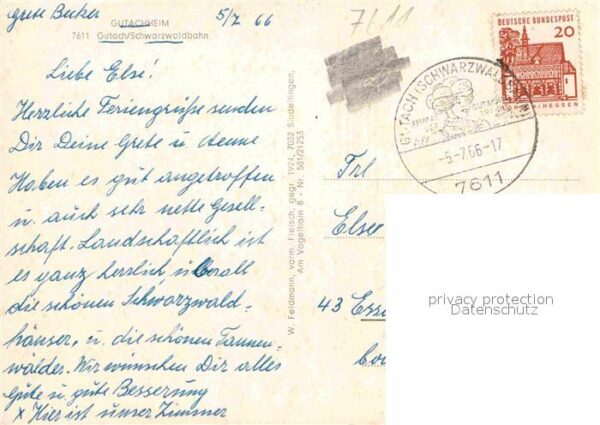 Grete Becker
5/7 66
GUTACHHEIM
7611 Gutach/Schwarzwaldbahn
Liebe Else!
Herzliche Feriengrüße senden
Dir Deine Grete u. Aenne
Haben es gut angetroffen
u. auch sehr nette Gesell-
schaft. Landschaftlich ist
es ganz herrlich überall
die schönen Schwarzwald-
häuser, u. die schönen Tannen-
wälder. Wir wünschen Dir alles
Gute u. gute Besserung
x Hier ist unser Zimmer
W. Feldmann, vorm. Fleisch, gegr. 1924, 7032 Sindelfingen,
Am Vogelhain 8 - Nr. 581/21253
7611
DEUTSCHE BUNDESPOST
20
GUTACH (SCHWARZWALDBAHN)
-6-7.66-17
7611
Frl
Else
43 Esse
privacy protection
Datenschutz